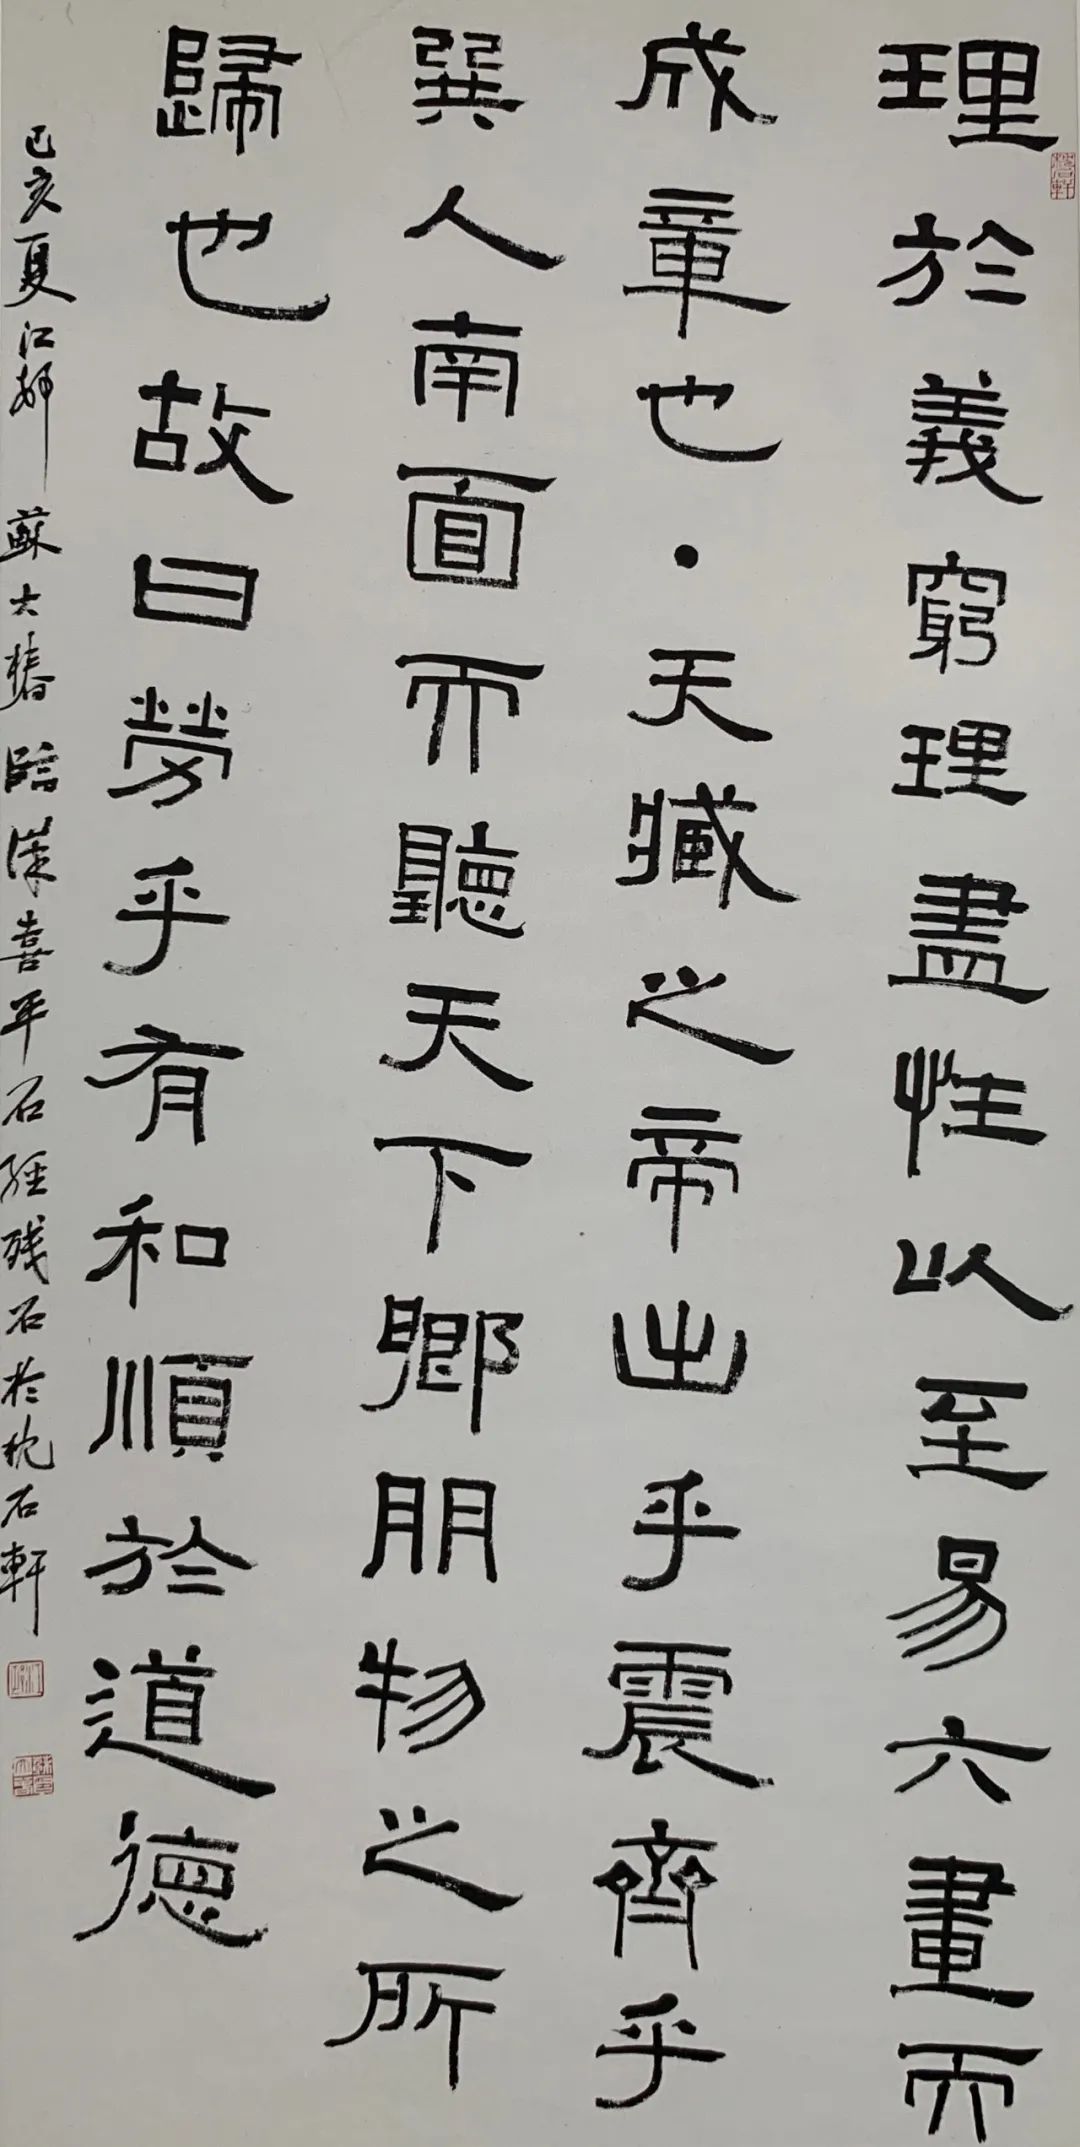 理於義窮理盡性以至易六畫而
成章也·天臧之帝出乎震齊乎
巽人南面而聽天下鄉朋物之所
歸也故曰勞乎有和順於道德
己亥夏江都蘇大椿臨漢熹平石經殘石於枕石軒